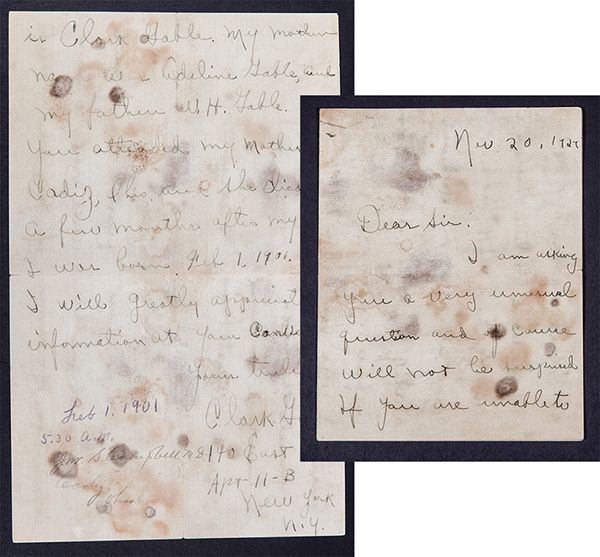 Nov. 20, 1928
Dear Sir:
I am asking
you a very unusual
question and of cause
will not be surprised
if you are unable to
is Clark Gable. My mother
name was Adeline Gable, and
my father W. H. Gable.
You attended my Mother
Cadiz, Ohio. and she died
a few months after my
I was born. Feb 1, 1901.
I will greatly appreciat
information at your
Yours trul
Clark G
140 East
Apt-11-B
New York
N.Y.
Feb 1. 1901
5.30 A.M.
Campbell M.D
Cadiz
Ohio